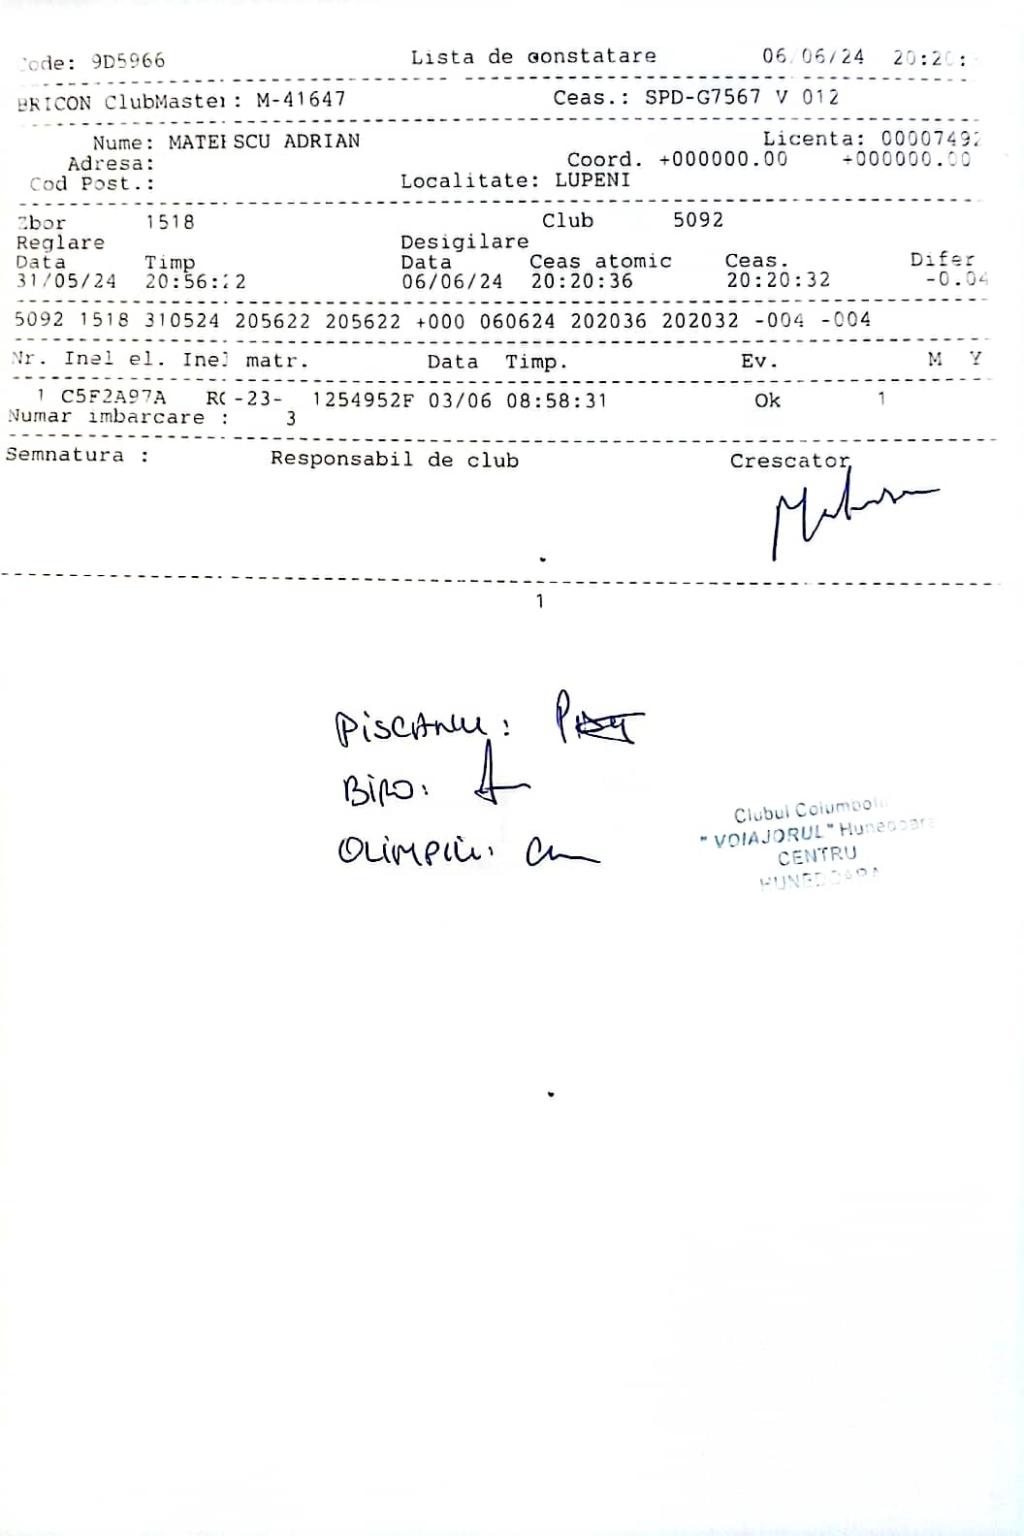 Code: 9D5966 Lista de constatare 06/06/24 20:20:
BRICON ClubMaster: M-41647 Ceas.: SPD-G7567 V 012
Nume: MATEESCU ADRIAN Licenta: 00007492
Adresa: Coord. +000000.00 +000000.00
Cod Post.: Localitate: LUPENI
Zbor 1518 Club 5092
Reglare Desigilare
Data Timp Data Ceas atomic Ceas. Difer
31/05/24 20:56:22 06/06/24 20:20:36 20:20:32 -0.04
5092 1518 310524 205622 205622 +000 060624 202036 202032 -004 -004
Nr. Inel el. Inel matr. Data Timp. Ev. M Y
1 C5F2A97A RO-23- 1254952F 03/06 08:58:31 Ok 1
Numar imbarcare : 3
Semnatura : Responsabil de club Crescator
1
PISCANU:
BIRO:
OLIMPIU:
Clubul Columbofil
"VOIAJORUL" Hunedoara
CENTRU
HUNEDOARA